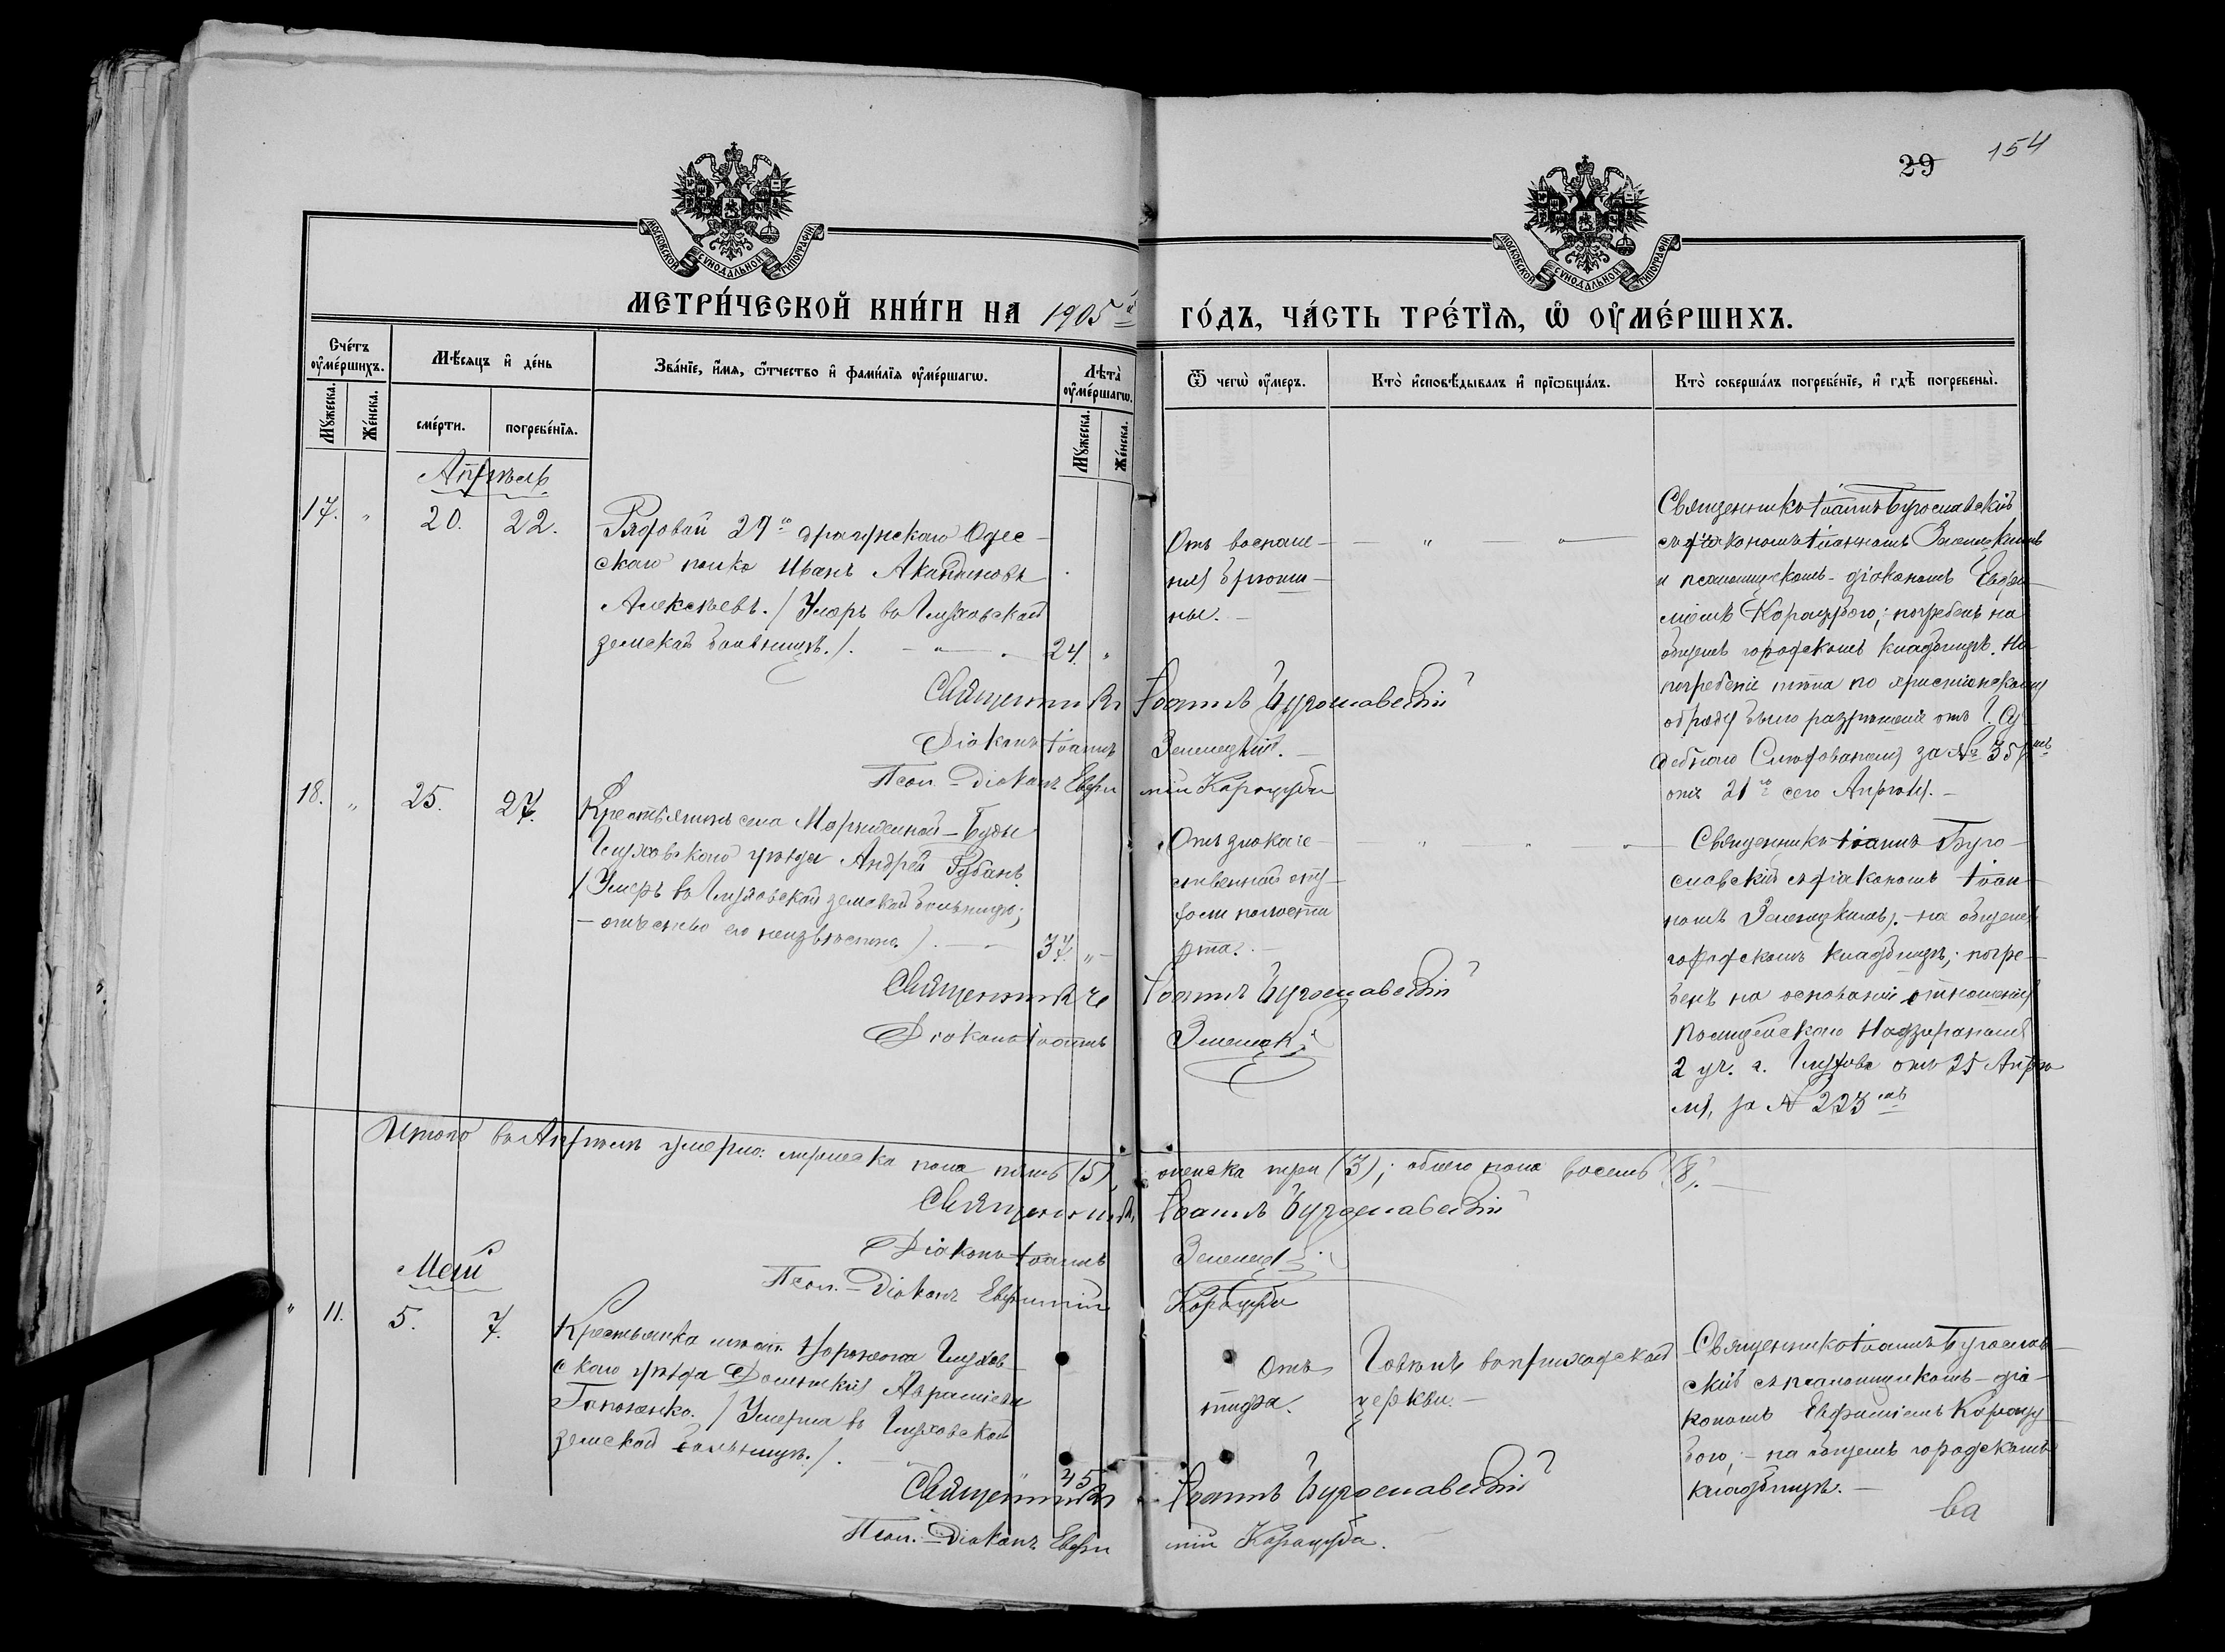 29 154
МОСКОВСКОЙ СѴНОДАЛЬНОЙ ТИПОГРАФІИ
МОСКОВСКОЙ СѴНОДАЛЬНОЙ ТИПОГРАФІИ
МЕТРИ́ЧЕСКОЙ КНИ́ГИ НА 1905й ГО́ДЪ, ЧА́СТЬ ТРЕ́ТІѦ, Ѡ҆ ОУ҆МЕ́РШИХЪ.
Сче́тъ оу҆ме́ршихъ.
Мꙋ́жеска.
Же́нска.
Мѣ́сѧцъ и҆ де́нь
сме́рти.
погребе́нїѧ.
Зва́нїе, и҆́мѧ, ѻ҆́тчество и҆ фами́лїѧ оу҆ме́ршагѡ.
Лѣта̀ оу҆ме́ршагѡ.
Мꙋ́жеска.
Же́нска.
Ѿ чегѡ̀ оу҆́меръ.
Кто̀ и҆сповѣ́дывалъ и҆ прїѡбща́лъ.
Кто̀ соверша́лъ погребе́нїе, и҆ гдѣ̀ погребены̀.
Апрѣль
17. " 20. 22.
Рядовой 27го драгунскаго Одес-
скаго полка Иванъ
Алексѣевъ. / Умеръ въ Глуховской
земской больницѣ./. 24. "
Отъ воспале-
нія брюши-
ны. -
Священникъ Іоаннъ Бугославскій
съ діакономъ Іоанномъ
и псаломщикомъ-діакономъ Евфи-
міемъ Карацубою; погребенъ на
общемъ городскомъ кладбищѣ. На
погребеніе тѣла по христіанскому
обряду было разрѣшеніе отъ Г. Су-
дебнаго Слѣдователя за №
отъ 21го сего Апрѣля. -
Священникъ Іоаннъ Бугославскій
Діаконъ Іоаннъ
Псал.-Діаконъ Евфимій Карацуба
18. " 25. 27.
Крестьянинъ села - Буды
Глуховского уѣзда Андрей Рубанъ.
/Умеръ въ Глуховской земской больницѣ;
- отчество его неизвѣстно./. 37. "
Отъ злокаче-
ственной опу-
холи полости
рта. -
Священникъ Іоаннъ Буго-
славскій съ діакономъ Іоан-
номъ - на общемъ
городскомъ кладбищѣ; погре-
бенъ на основаніи отношенія
Полицейского Надзирателя
2 уч. г. Глухова отъ 25 Апрѣ-
ля, за № 223мъ
Священникъ Іоаннъ Бугославскій
Діаконъ Іоаннъ
Итого въ Апрѣлѣ умерло: мужеска пола пять (5), женска три (3); обоего пола восемь (8).
Священникъ Іоаннъ Бугославскій
Діаконъ Іоаннъ
Псал.-Діаконъ Евфимій Карацуба
Май
" 11. 5. 7.
Крестьянка мѣст. Воронежа Глухов-
скаго уѣзда Домникія
Гапоненко. / Умерла въ Глуховской
земской больницѣ./. " 45
Отъ
тифа.
Говѣла въ приходской
церкви. -
Священникъ Іоаннъ Бугослав-
скій съ псаломщикомъ-діа-
кономъ Евфиміемъ Карацу-
бою; - на общемъ городскомъ
кладбищѣ. -
Священникъ Іоаннъ Бугославскій
Псал.-Діаконъ Евфимій Карацуба.
ва